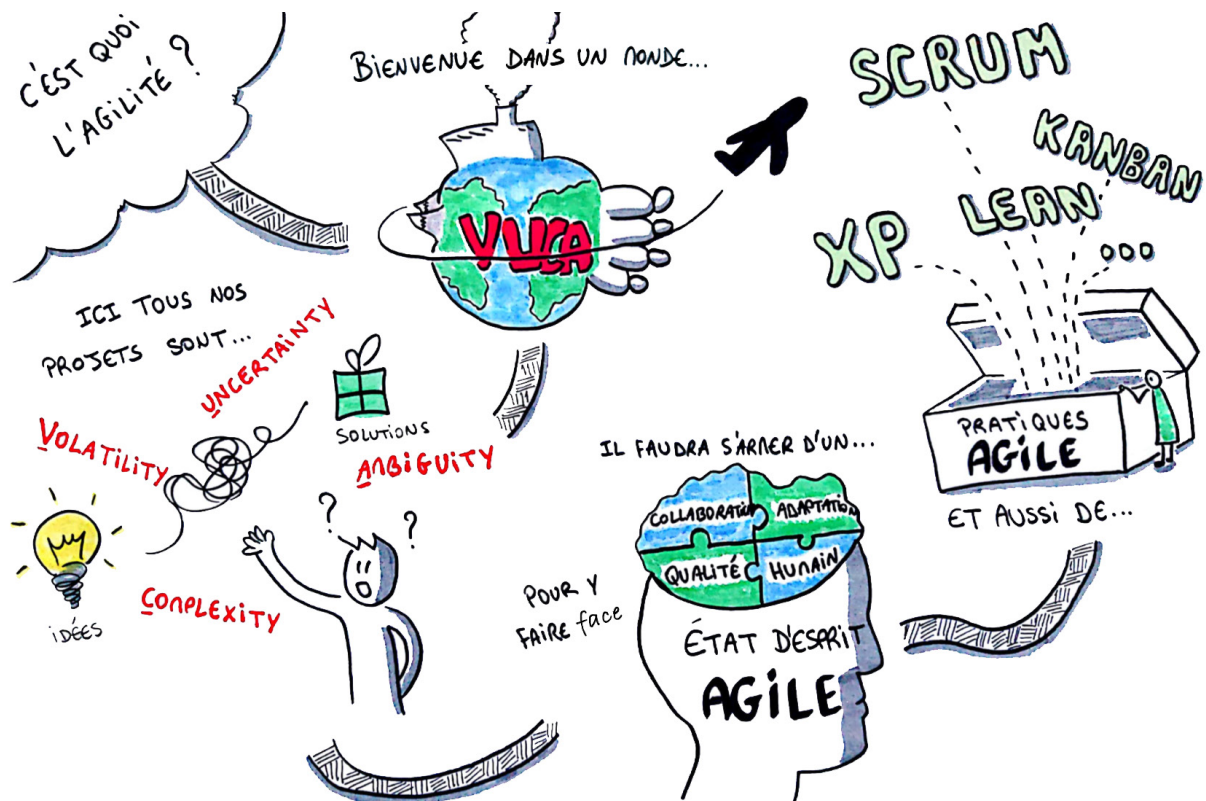 C'EST QUOI
L'AGILITÉ ?
BIENVENUE DANS UN MONDE...
VUCA
ICI TOUS NOS
PROJETS SONT...
VOLATILITY
UNCERTAINTY
COMPLEXITY
AMBIGUITY
IDÉES
SOLUTIONS
?
?
POUR Y
FAIRE face
IL FAUDRA S'ARMER D'UN...
COLLABORATION
ADAPTATION
QUALITÉ
HUMAIN
ÉTAT D'ESPRIT
AGILE
ET AUSSI DE...
PRATIQUES
AGILE
XP
LEAN
SCRUM
KANBAN
...